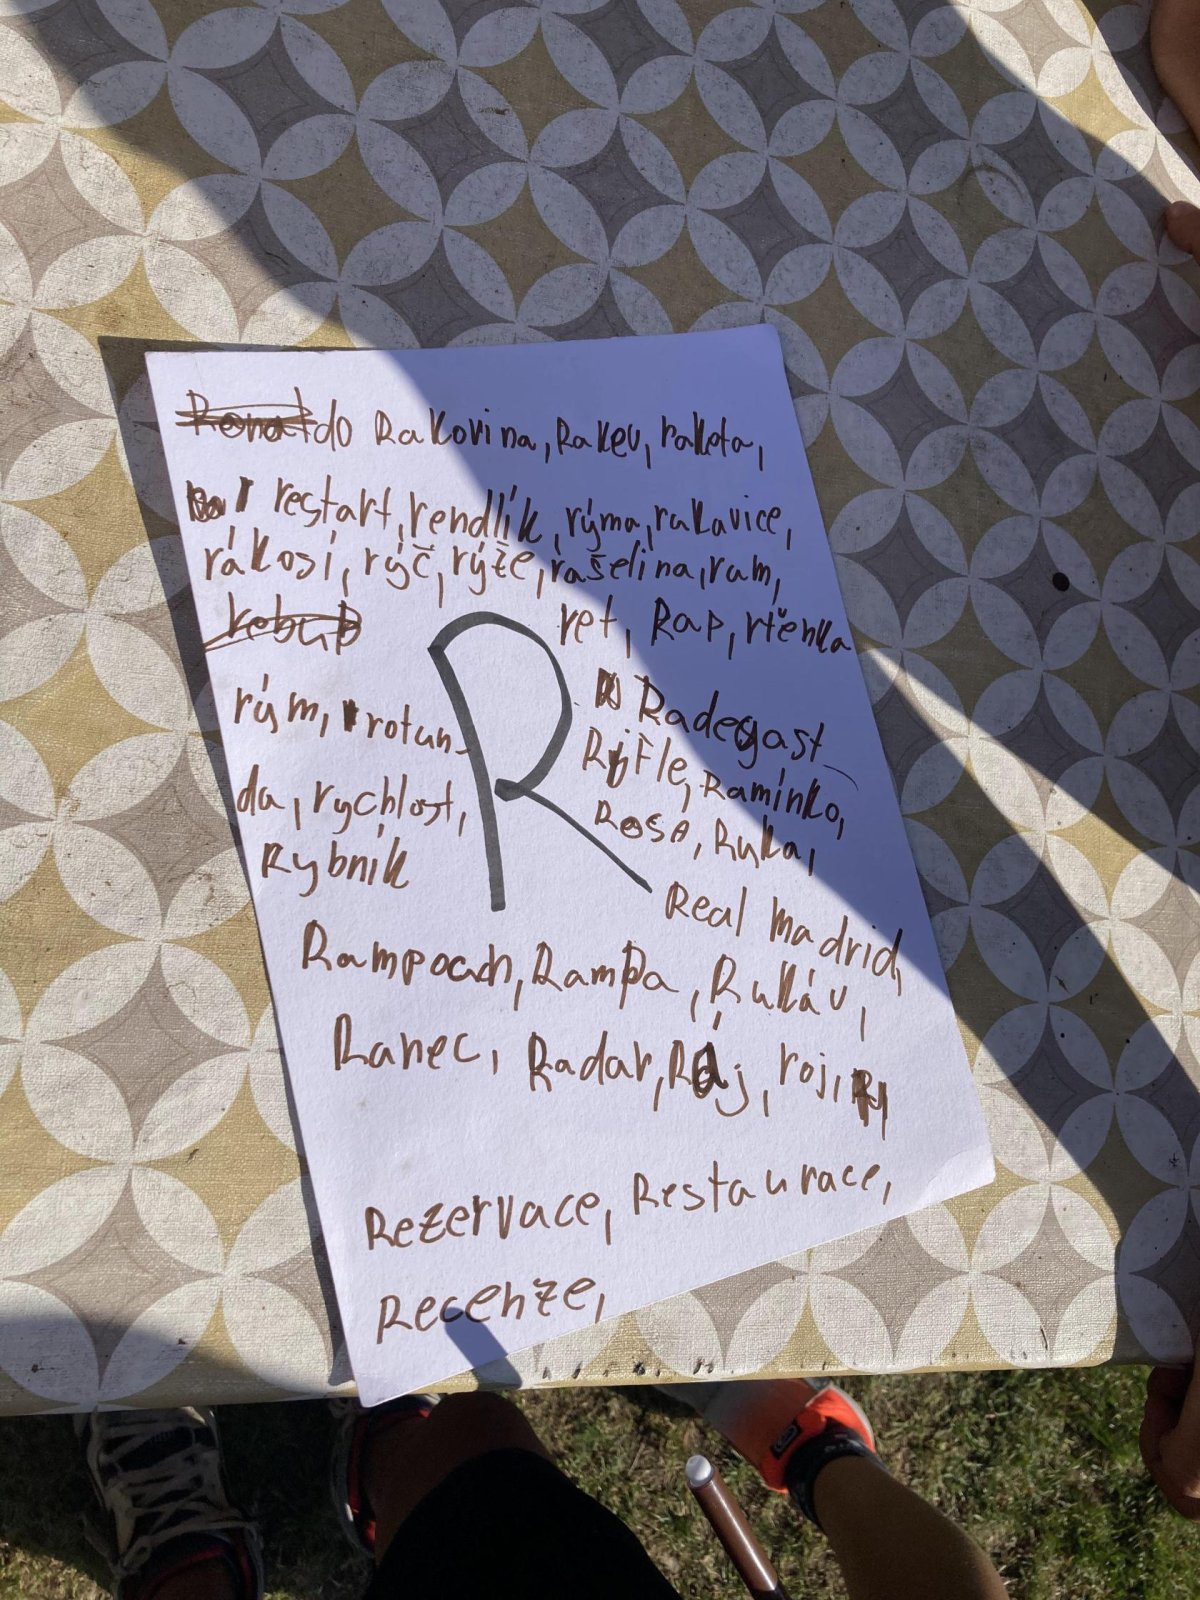 Ronaldo Rakovina, Rakev, raketa,
restart, rendlík, rýma, rukavice,
rákosí, rýč, rýže, rašelina, rum,
rebup
ret, Rap, rtěnka
R
Radegast
rým, rotun-
Rifle, Ramínko,
da, rychlost,
Rosa, Ruka,
Rybník
Real madrid,
Rampouch, Rampa, Rukáv,
Ranec, Radar, Ráj, roj,
Rezervace, Restaurace,
Recenze,